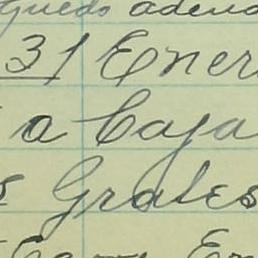 quedo adeud
31 Ener
a Caja
s Grales